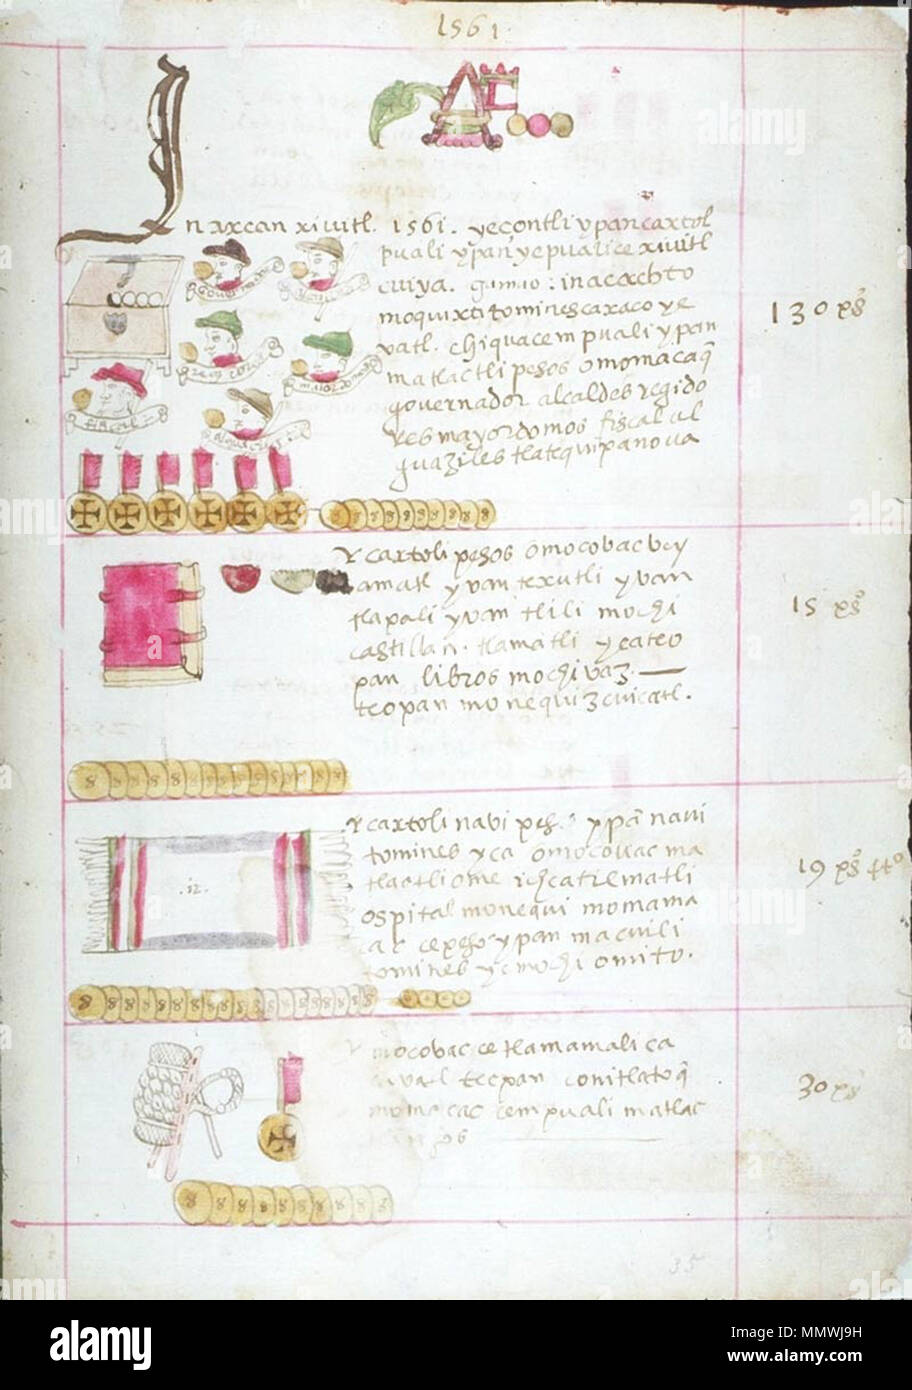 1561
In axcan xivitl. 1561. yecontli ypan caxtol
puali ypan yepuali ce xivitl
cuiya. gunio: in acachto
moquixti tomines caxaco ye
vatl. chiquacempuali ypan
matlactli pesos omomacaq̃
governador alcaldes regido
res mayordomos fiscal al
guaziles tlatequipanova
130 ps̃
fiscal
Y caxtoli pesos omocobac vey
amatl yvan texutli yvan
tlapali yvan tlili mochi
castillan. tlamatli yeateo
pan libros mochivaz
teopan monequiz cuicatl.
15 ps̃
Y caxtoli navi pes.ˢ ypã navi
tomines yca omocovac ma
tlactliome ichcatilmatli
ospital monequi momama
cac ce peso ypan macuili
tomines yc mochi omito.
.12.
19 ps̃ 4tº
mocobac ce tlamamali ca
cavatl teopan conitlatoq̃
momacac cempuali matlac
30 ps̃
35
alamy
Image ID: MMWJ9H
www.alamy.com